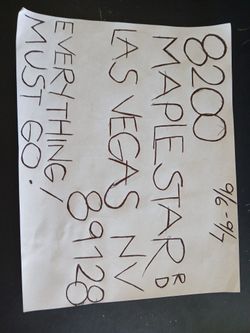 8200 9/6 - 9/7
MAPLESTAR RD
LAS VEGAS NV
89128
EVERYTHING
MUST GO!